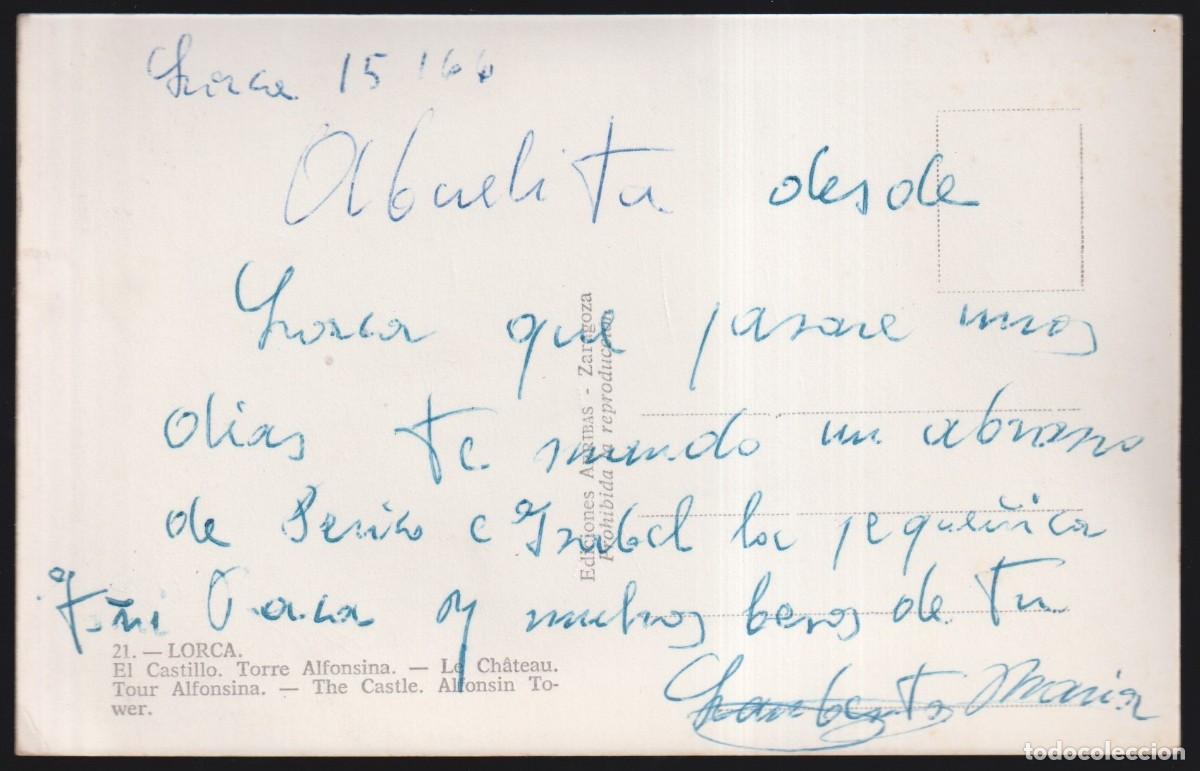 Lorca 15 166
Abuelita desde
Lorca que pasare unos
dias te mando un abrazo
de Perico e Isabel la pequeñica
Paca y muchos besos de tu
Maria
Ediciones ARRIBAS - Zaragoza
Prohibida la reproducción
21. — LORCA.
El Castillo. Torre Alfonsina. — Le Château.
Tour Alfonsina. — The Castle. Alfonsin To-
wer.
todocoleccion